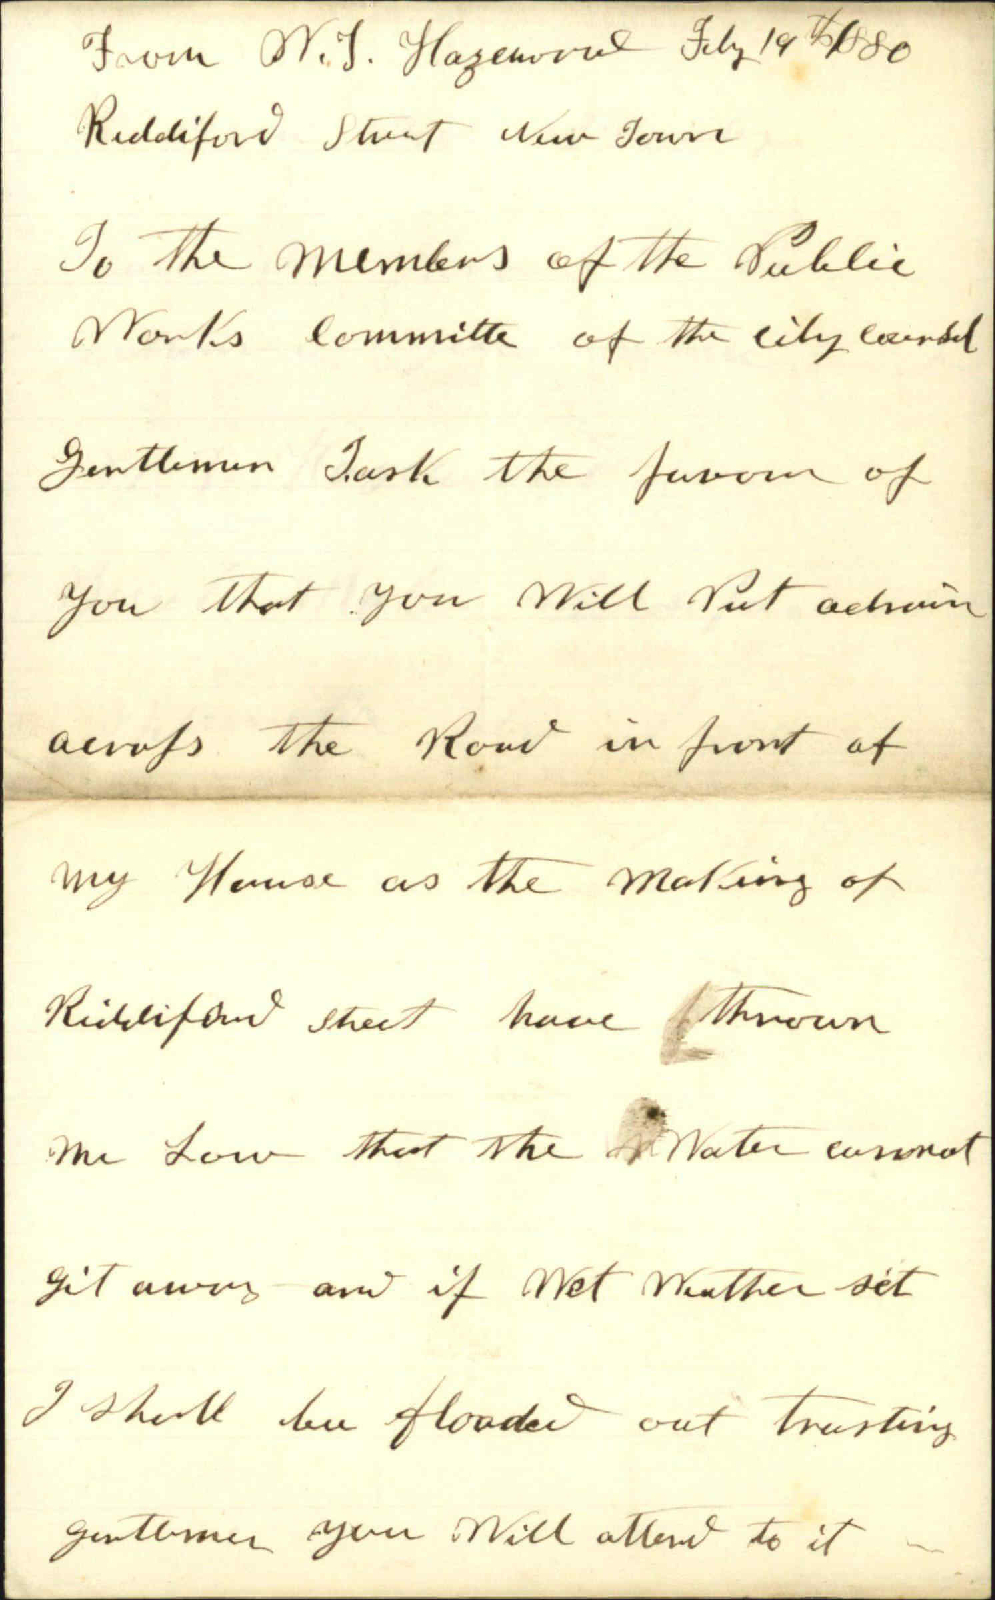 From W. T. Hazelwood Feby 19th 1880
Riddiford Street New Town
To the Members of the Public
Works Committe of the city councel
Gentlemen I ask the favour of
you that you Will Put adrain
across the Road in front of
my House as the Making of
Riddiford street have thrown
Me Low that the Water cannot
git away and if Wet Weather set
I shall be flooded out trusting
gentlemen you Will attend to it